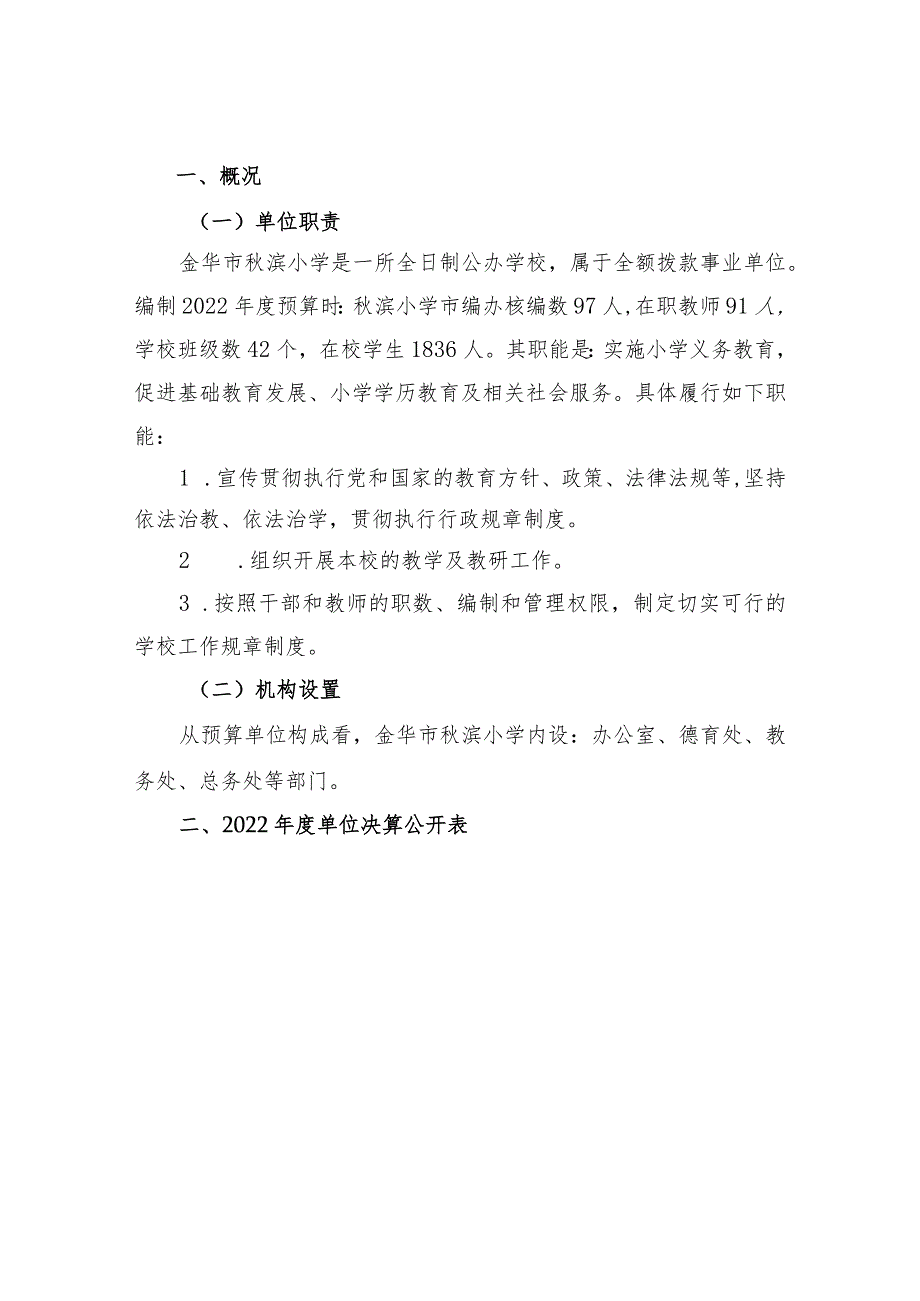 一、概况
（一）单位职责
金华市秋滨小学是一所全日制公办学校，属于全额拨款事业单位。
编制2022年度预算时：秋滨小学市编办核编数97人,在职教师91人，
学校班级数42个，在校学生1836人。其职能是：实施小学义务教育，
促进基础教育发展、小学学历教育及相关社会服务。具体履行如下职
能：
1 .宣传贯彻执行党和国家的教育方针、政策、法律法规等,坚持
依法治教、依法治学，贯彻执行行政规章制度。
2 .组织开展本校的教学及教研工作。
3 .按照干部和教师的职数、编制和管理权限，制定切实可行的
学校工作规章制度。
（二）机构设置
从预算单位构成看，金华市秋滨小学内设：办公室、德育处、教
务处、总务处等部门。
二、2022年度单位决算公开表